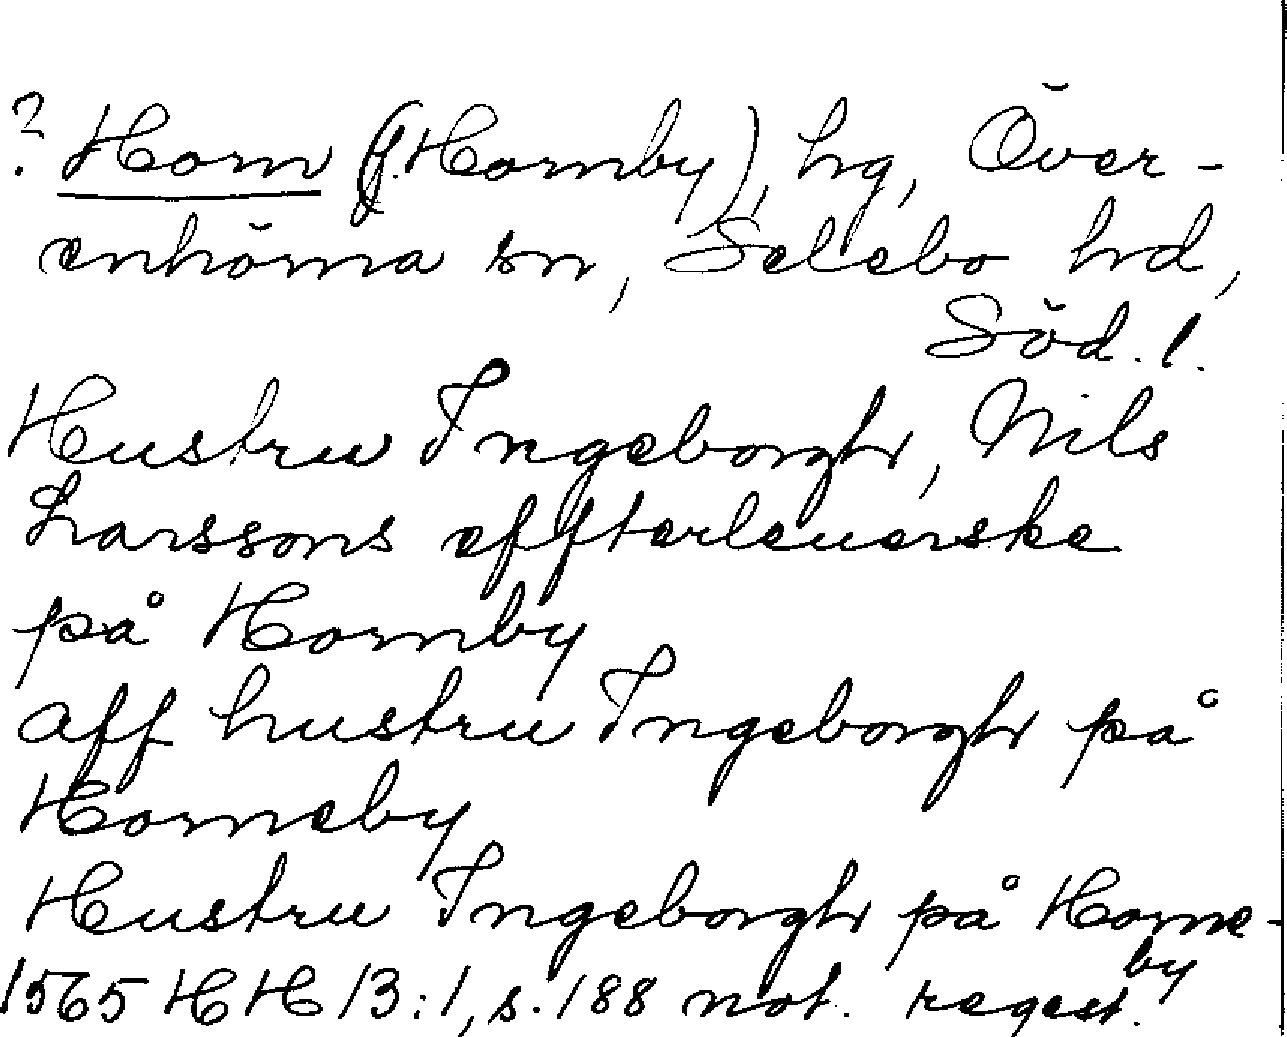 ? Horn (f. Hornby), hg, Över-
enhörna sn, Selebo hd,
Söd. l.
Hustru Ingeborgh, Nils
Larssons effterleuerske
på Hornby
aff hustru Ingeborgh på
Horneby
Hustru Ingeborgh på Horne-
by
1565 HH 13:1, s. 188 not. regest.